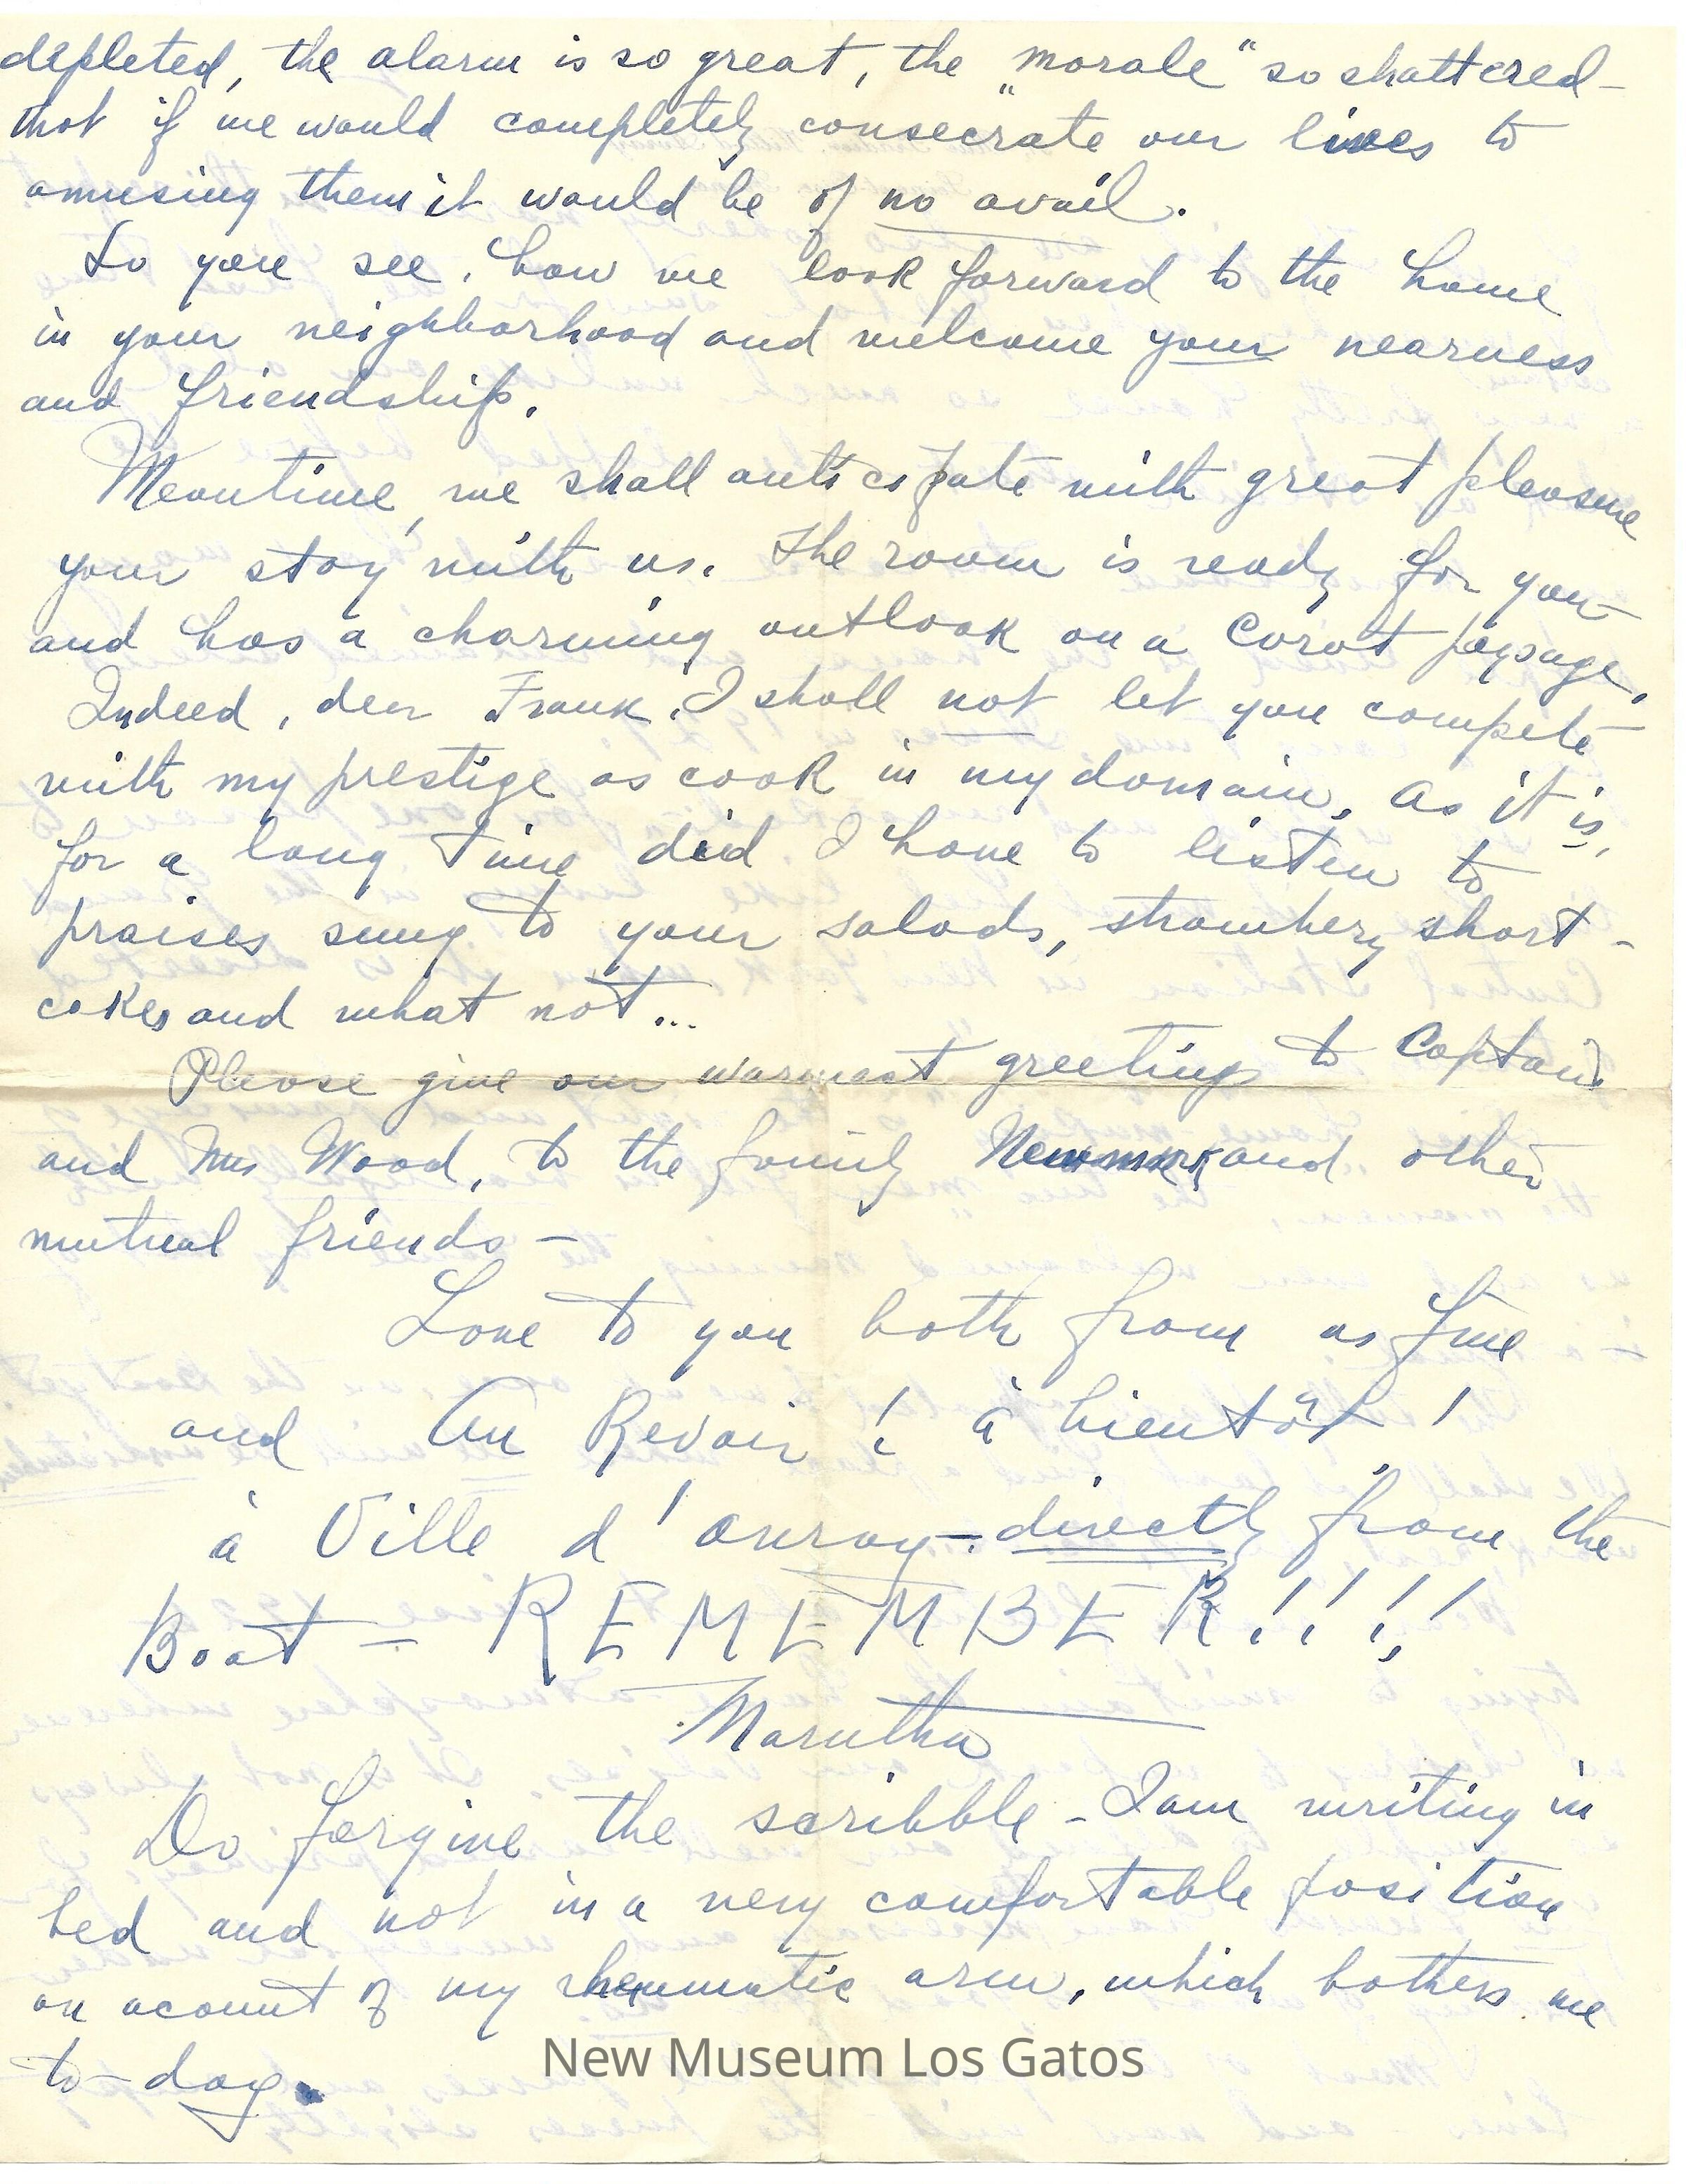 depleted, the alarm is so great, the "morale" so shattered-
that if we would completely consecrate our lives to
amusing them it would be of no avail.
So you see, how we look forward to the home
in your neighborhood and welcome your nearness
and friendship.
Meantime, we shall anticipate with great pleasure
your stay with us. The room is ready for you
and has a charming outlook on a Corot paysage.
Indeed, dear Frank, I shall not let you compete
with my prestige as cook in my domain. As it is,
for a long time did I have to listen to
praises sung to your salads, strawbery short-
cakes and what not...
Please give our warmest greetings to Captain
and Mrs Wood, to the family Newmark and other
mutual friends -
Love to you both from us five
and Au Revoir! à bientôt!
à Ville d'avray - directly from the
Boat - REMEMBER!!!!
Marutha
Do forgive the scribble - I am writing in
bed and not in a very comfortable position
on acount of my rheumatic arm, which bothers me
to-day.
New Museum Los Gatos